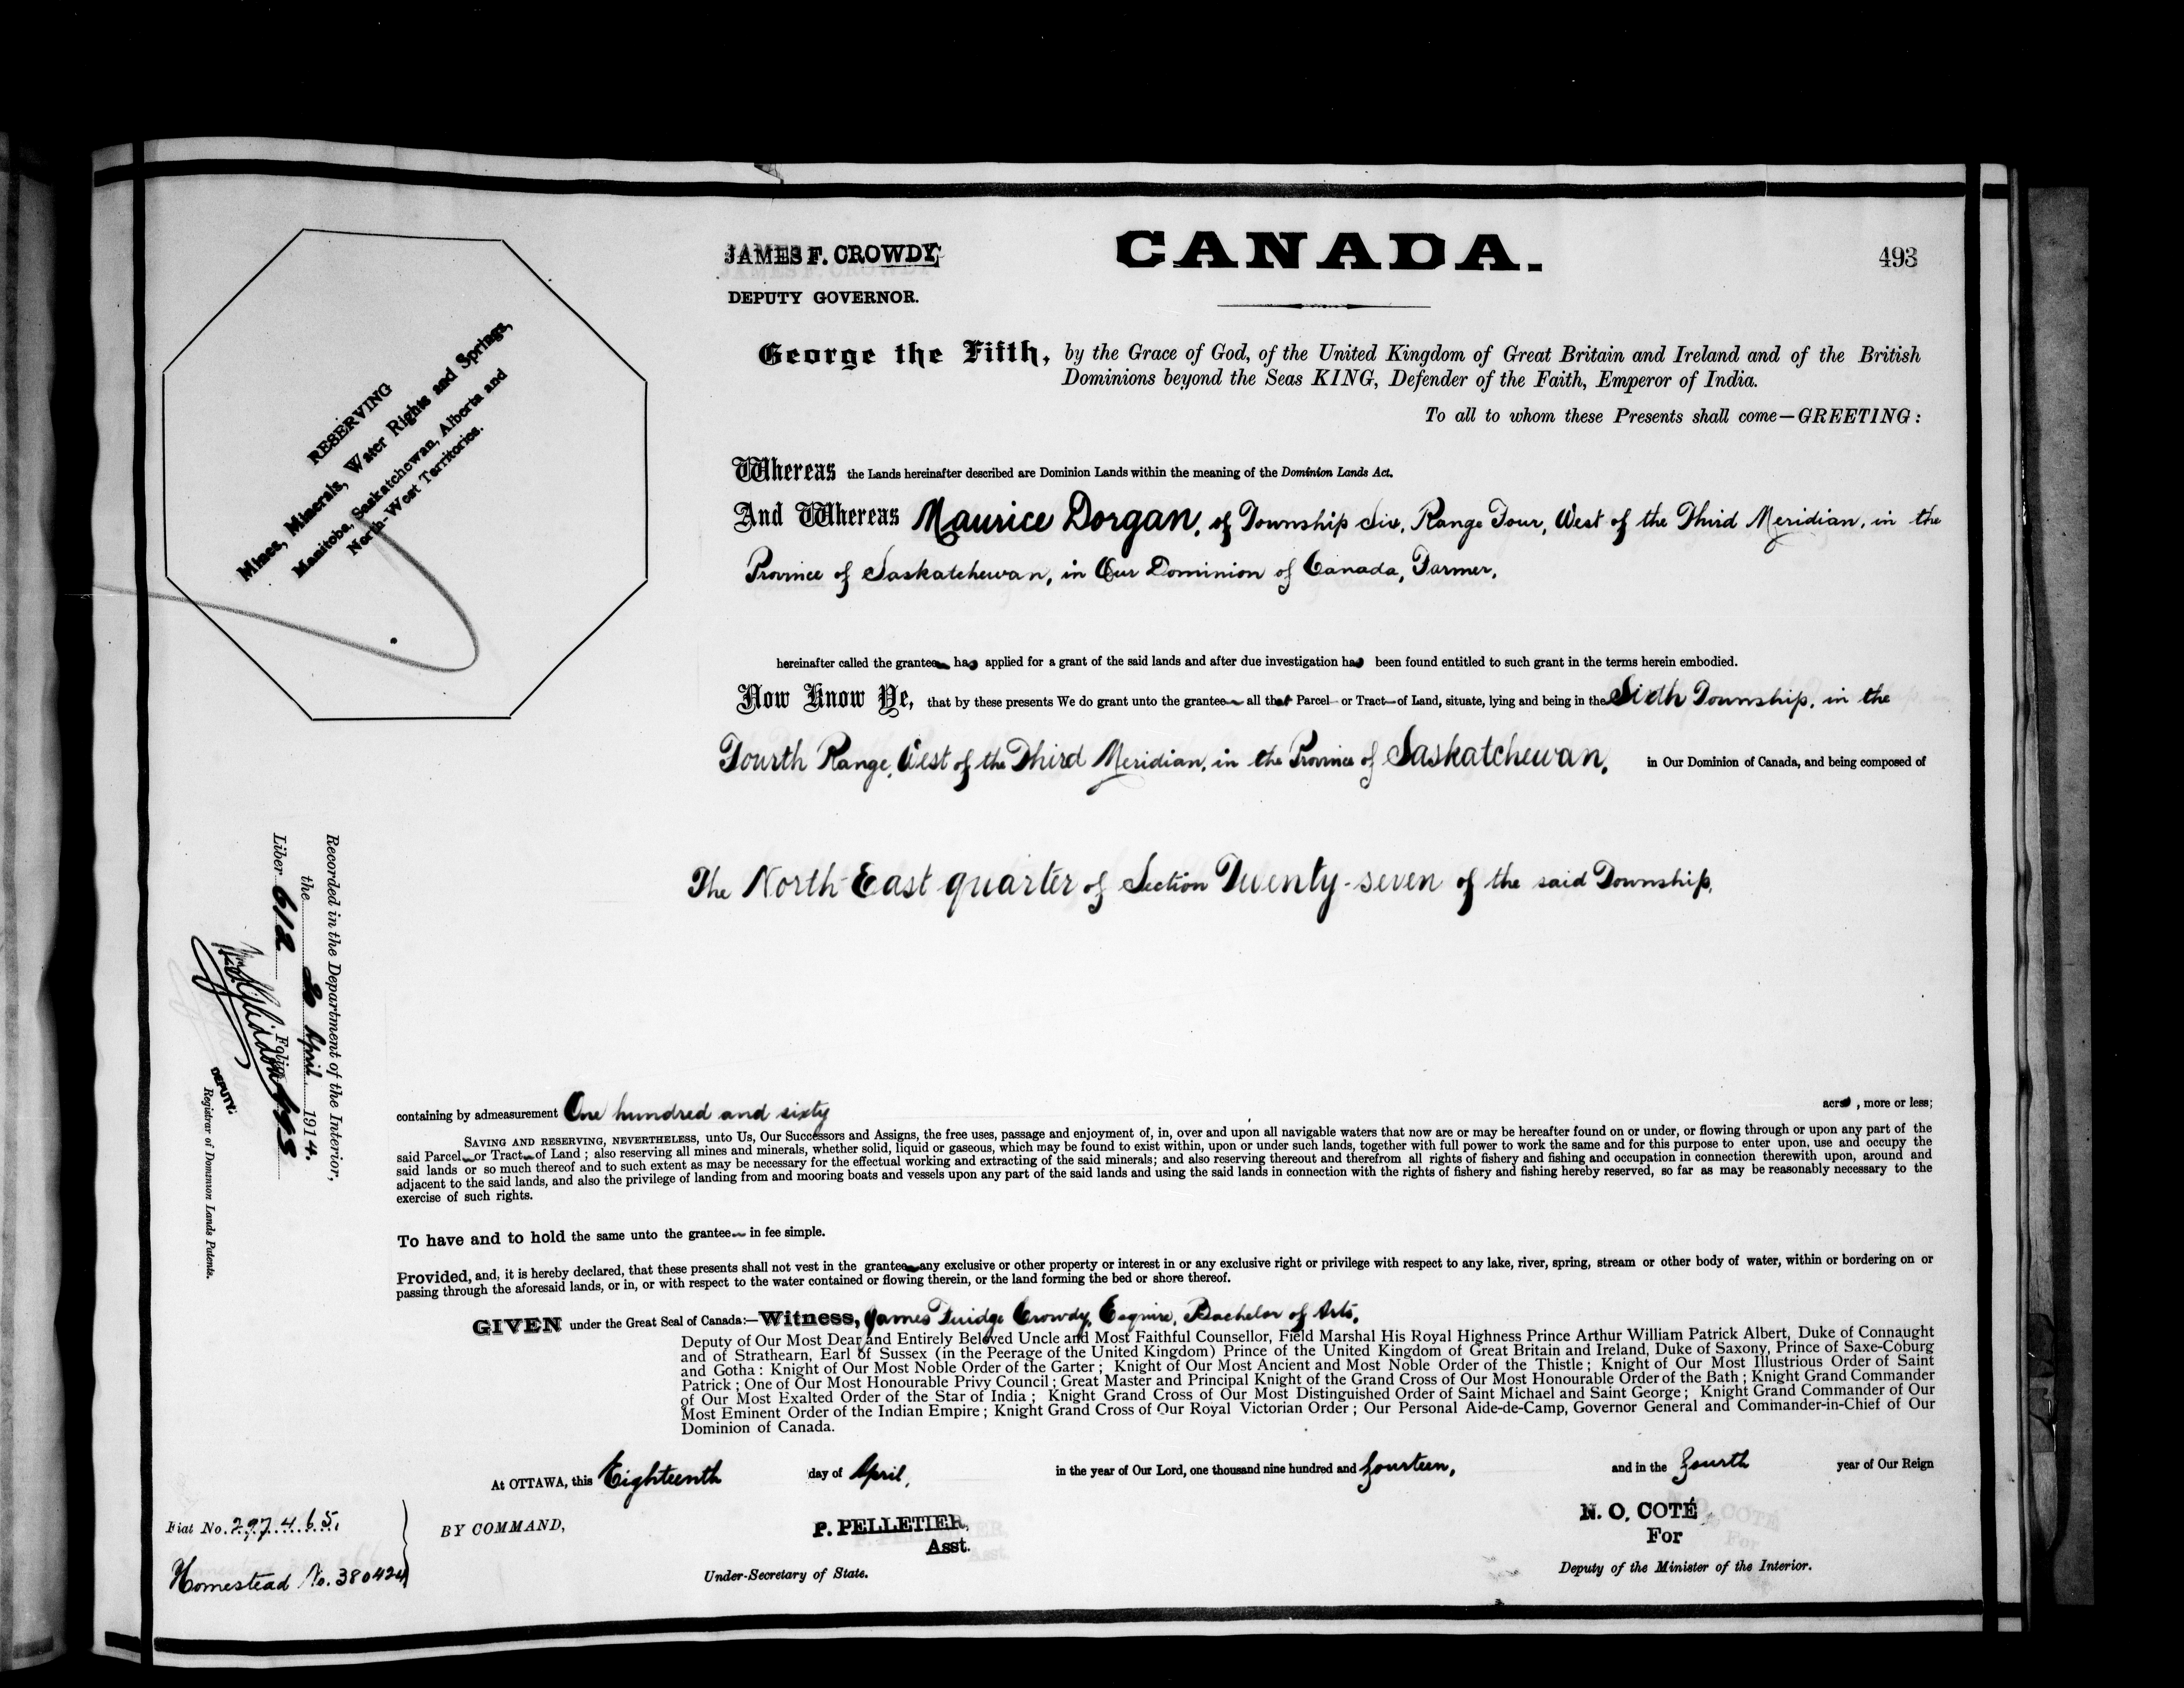 JAMES F. CROWDY,
DEPUTY GOVERNOR.
CANADA.
493
RESERVING
Mines, Minerals, Water Rights and Springs,
Manitoba, Saskatchewan, Alberta and
North-West Territories.
George the Fifth, by the Grace of God, of the United Kingdom of Great Britain and Ireland and of the British
Dominions beyond the Seas KING, Defender of the Faith, Emperor of India.
To all to whom these Presents shall come—GREETING:
Whereas the Lands hereinafter described are Dominion Lands within the meaning of the Dominion Lands Act.
And Whereas Maurice Dorgan, of Township Six, Range Four, West of the Third Meridian, in the
Province of Saskatchewan, in Our Dominion of Canada, Farmer,
hereinafter called the grantee has applied for a grant of the said lands and after due investigation has been found entitled to such grant in the terms herein embodied.
Now Know Ye, that by these presents We do grant unto the grantee all that Parcel or Tract of Land, situate, lying and being in the Sixth Township, in the
Fourth Range, West of the Third Meridian, in the Province of Saskatchewan, in Our Dominion of Canada, and being composed of
The North East quarter of Section Twenty-seven of the said Township,
Recorded in the Department of the Interior,
the 20 April 1914.
Liber 612 Folio 493
DEPUTY:
Registrar of Dominion Lands Patents.
containing by admeasurement One hundred and sixty acres, more or less;
SAVING AND RESERVING, NEVERTHELESS, unto Us, Our Successors and Assigns, the free uses, passage and enjoyment of, in, over and upon all navigable waters that now are or may be hereafter found on or under, or flowing through or upon any part of the
said Parcel or Tract of Land; also reserving all mines and minerals, whether solid, liquid or gaseous, which may be found to exist within, upon or under such lands, together with full power to work the same and for this purpose to enter upon, use and occupy the
said lands or so much thereof and to such extent as may be necessary for the effectual working and extracting of the said minerals; and also reserving thereout and therefrom all rights of fishery and fishing and occupation in connection therewith upon, around and
adjacent to the said lands, and also the privilege of landing from and mooring boats and vessels upon any part of the said lands and using the said lands in connection with the rights of fishery and fishing hereby reserved, so far as may be reasonably necessary to the
exercise of such rights.
To have and to hold the same unto the grantee in fee simple.
Provided, and, it is hereby declared, that these presents shall not vest in the grantee any exclusive or other property or interest in or any exclusive right or privilege with respect to any lake, river, spring, stream or other body of water, within or bordering on or
passing through the aforesaid lands, or in, or with respect to the water contained or flowing therein, or the land forming the bed or shore thereof.
GIVEN under the Great Seal of Canada:—Witness, James Fuidge Crowdy, Esquire, Bachelor of Arts,
Deputy of Our Most Dear and Entirely Beloved Uncle and Most Faithful Counsellor, Field Marshal His Royal Highness Prince Arthur William Patrick Albert, Duke of Connaught
and of Strathearn, Earl of Sussex (in the Peerage of the United Kingdom) Prince of the United Kingdom of Great Britain and Ireland, Duke of Saxony, Prince of Saxe-Coburg
and Gotha: Knight of Our Most Noble Order of the Garter; Knight of Our Most Ancient and Most Noble Order of the Thistle; Knight of Our Most Illustrious Order of Saint
Patrick; One of Our Most Honourable Privy Council; Great Master and Principal Knight of the Grand Cross of Our Most Honourable Order of the Bath; Knight Grand Commander
of Our Most Exalted Order of the Star of India; Knight Grand Cross of Our Most Distinguished Order of Saint Michael and Saint George; Knight Grand Commander of Our
Most Eminent Order of the Indian Empire; Knight Grand Cross of Our Royal Victorian Order; Our Personal Aide-de-Camp, Governor General and Commander-in-Chief of Our
Dominion of Canada.
At OTTAWA, this Eighteenth day of April, in the year of Our Lord, one thousand nine hundred and fourteen, and in the fourth year of Our Reign
Fiat No. 297465.
Homestead No. 380424
BY COMMAND,
P. PELLETIER,
Asst.
Under-Secretary of State.
N. O. COTÉ
For
Deputy of the Minister of the Interior.